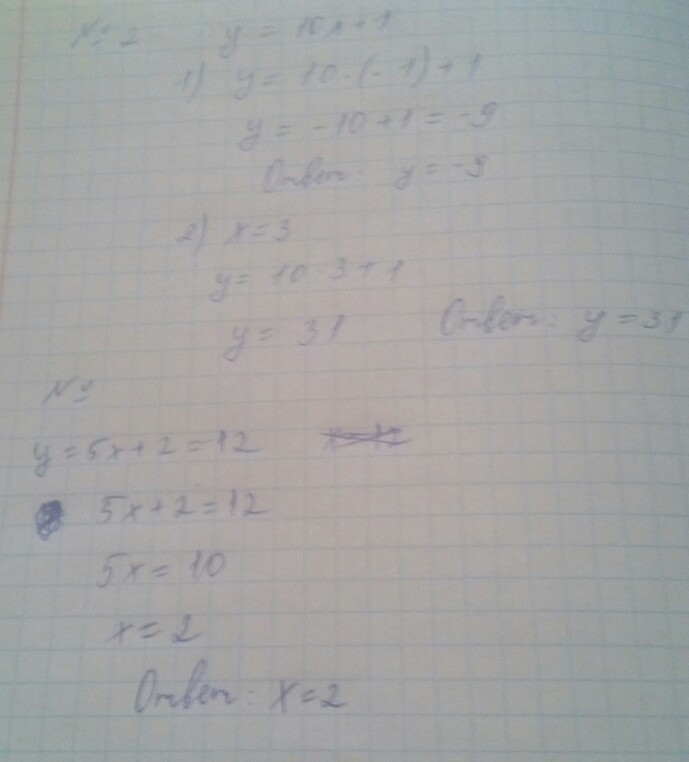 № 2 y = 10x+1
1) y = 10·(-1)+1
y = -10+1 = -9
Ответ: y = -9
2) x=3
y= 10·3+1
y= 31 Ответ: y = 31
№
y=5x+2=12
5x+2=12
5x= 10
x=2
Ответ: x=2